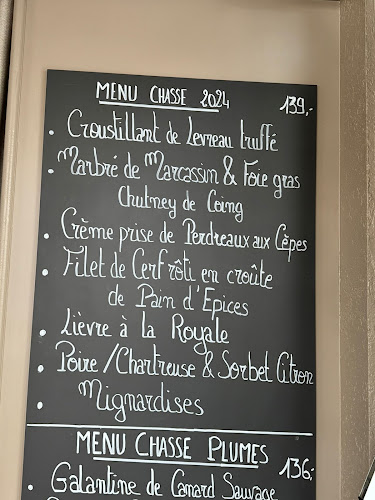 MENU CHASSE 2024 139,-
• Croustillant de Levreau truffé
• Marbré de Marcassin & Foie gras
Chutney de Coing
• Crème prise de Perdreaux aux Cèpes
• Filet de Cerf rôti en croûte
de Pain d'Epices
• Lièvre à la Royale
• Poire / Chartreuse & Sorbet Citron
• Mignardises
MENU CHASSE PLUMES 136,-
• Galantine de Canard Sauvage